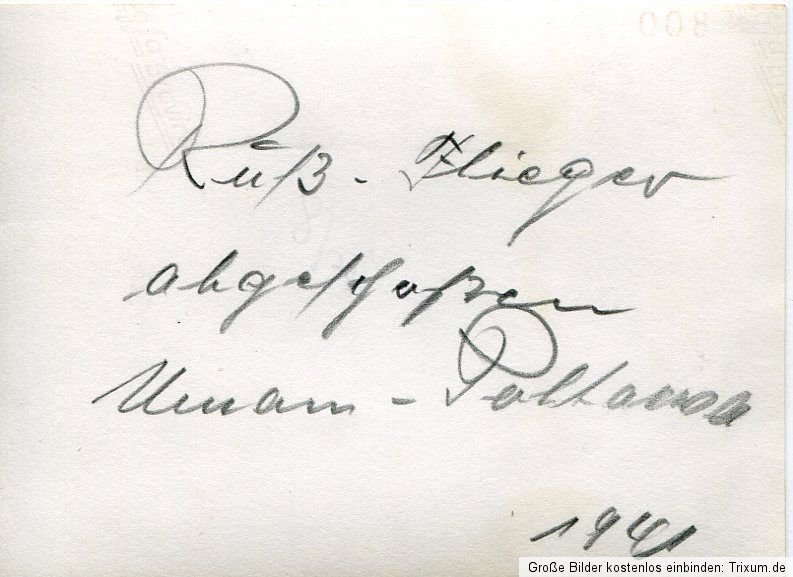 008
Rüß - Flieger
abgeschoßen
Uman - Poltawa
1941
Große Bilder kostenlos einbinden: Trixum.de